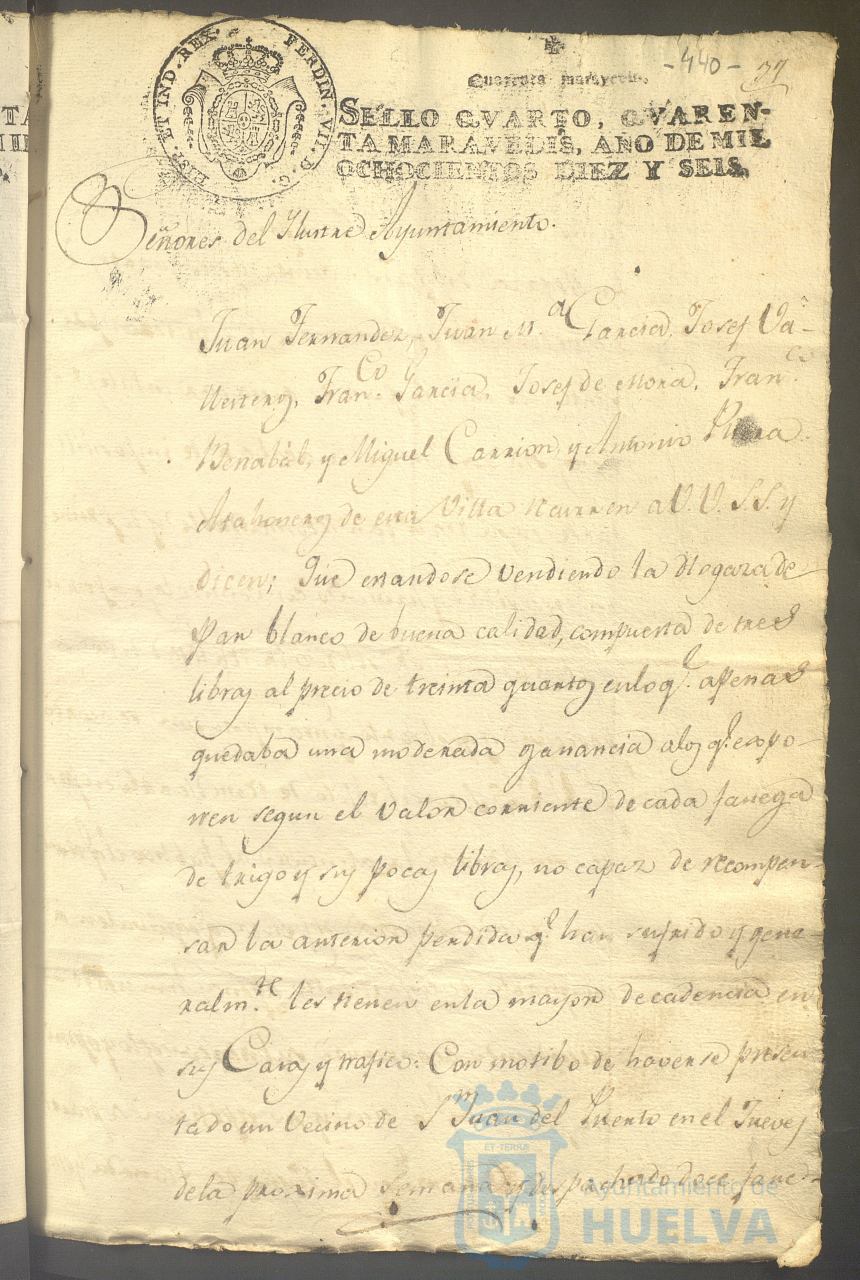 -440-
37
Quarenta maravedis.
SELLO QVARTO, QVAREN-
TA MARAVEDIS, AÑO DE MIL
OCHOCIENTOS DIEZ Y SEIS.
HISP. ET IND. REX. FERDIN. VII. D. G.
Señores del Ylustre Ayuntamiento.
Juan Fernandez, Juan M.ª Garcia, Josef Va-
llesteros, Fran.co Garcia, Josef de Mora, Fran.co
Benabat, y Miguel Carrion, y Antonio
Atahoneros de esta Villa recurren a V.V. S.S. y
dicen; Que estandose vendiendo la Hogaza de
Pan blanco de buena calidad, compuesta de tres
libras al precio de treinta quartos en lo q.e apenas
quedaba una moderada ganancia a los q.e expo-
nen segun el valor corriente de cada fanega
de trigo y sus pocas libras, no capaz de recompen-
sar la anterior perdida q.e han sufrido y gene-
ralm.te les tienen en la mayor decadencia en
sus Casas y trafico: Con motibo de haverse presen-
tado un Vecino de S.n Juan del Puerto en el Jueves
de la proxima Semana y despachado doce fane-
ET TERRÆ
Ayuntamiento de
HUELVA